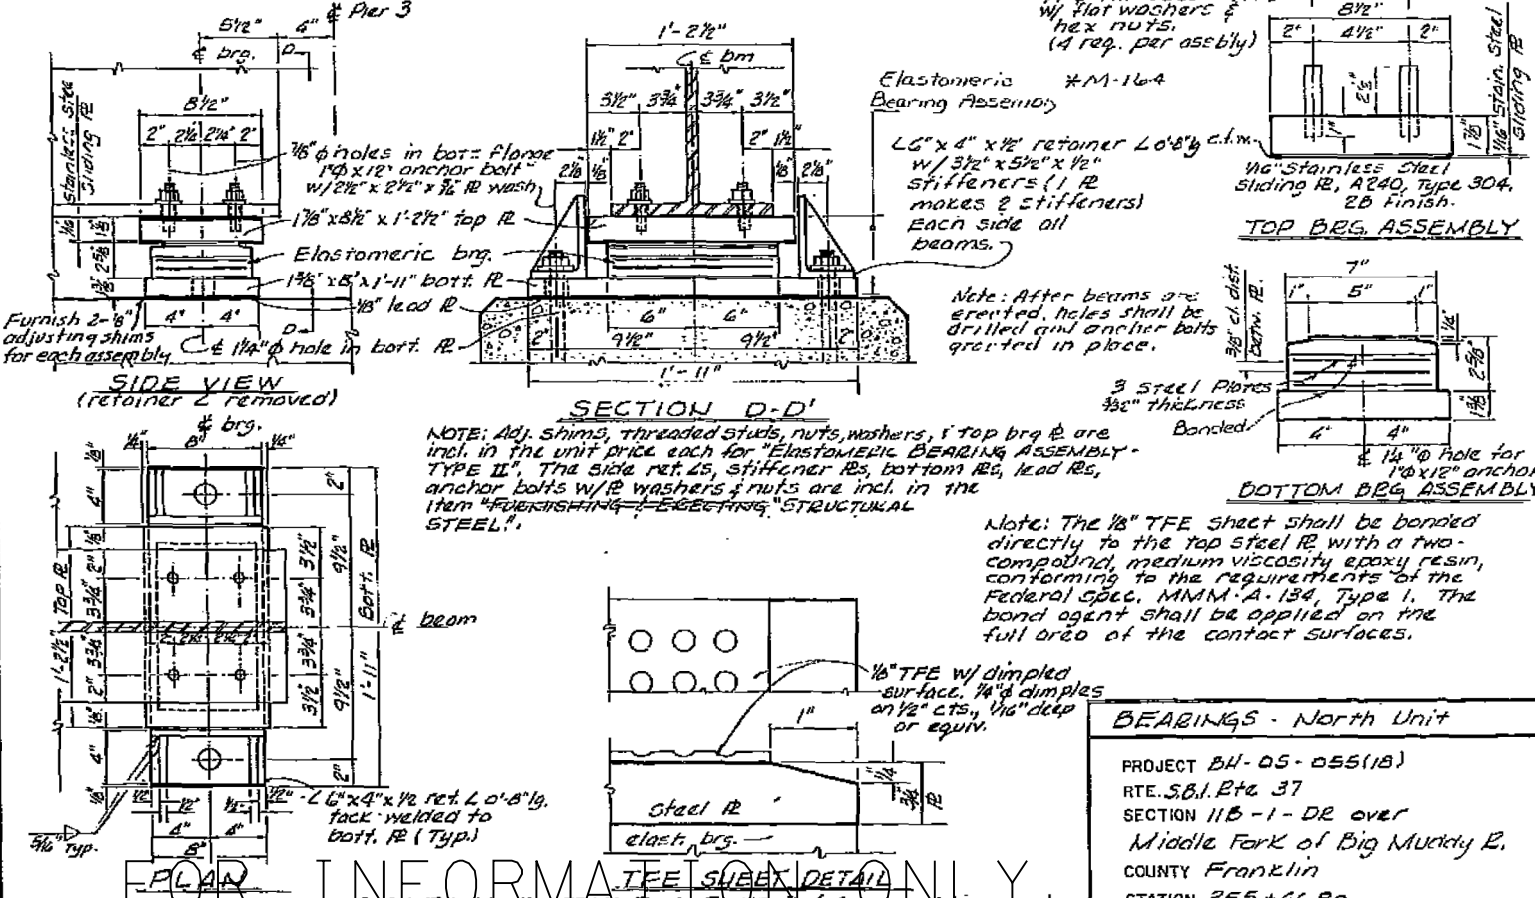 ℄ Pier 3
5 1/2" 4"
℄ brg.
D
8 1/2"
2" 2 1/4" 2 1/4" 2"
Sliding ℙ
7/8" φ holes in bott. flange
1"φ x 12" anchor bolt
w/ 2 1/2" x 2 1/2" x 5/16" ℙ wash
1 7/8" x 8 1/2" x 1'-2 1/2" top ℙ
Elastomeric brg.
1 3/8" x 8" x 1'-11" bott. ℙ
1/8" lead ℙ
Furnish 2-1/8"
adjusting shims
for each assembly
4" 4"
D
℄ 1 1/4" φ hole in bott. ℙ
SIDE VIEW
(retainer ∠ removed)
1'-2 1/2"
℄ bm
3 1/2" 3 3/4" 3 3/4" 3 1/2"
1 1/2" 2" 2" 1 1/2"
2 1/8" 1/8" 1/8" 2 1/8"
6" 6"
2" 9 1/2" 9 1/2" 2"
1'-11"
SECTION D-D'
w/ flat washers &
hex nuts.
(4 req. per assbly)
Elastomeric *M-164
Bearing Assembly
L6" x 4" x 1/2" retainer ∠ 0'-8"lg c.f.w.
w/ 3 1/2" x 5 1/2" x 1/2"
stiffeners (1 ℙ
makes 2 stiffeners)
Each side all
beams.
Note: After beams are
erected, holes shall be
drilled and anchor bolts
grouted in place.
8 1/2"
2" 4 1/2" 2"
2 1/2"
1"
1 7/8"
1/16" Stain. Steel
Sliding ℙ
1/16" Stainless Steel
Sliding ℙ, A240, Type 304,
2B Finish.
TOP BRG. ASSEMBLY
7"
1" 5" 1"
1/4"
2 5/8"
1 3/8"
3/8" cl. dist.
betw. ℙ.
3 Steel Plates
3/32" thickness
Bonded
4" 4"
℄ 1 1/4" φ hole for
1"φ x 12" anchor
BOTTOM BRG. ASSEMBLY
NOTE: Adj. shims, threaded studs, nuts, washers, & top brg ℙ are
incl. in the unit price each for "ELASTOMERIC BEARING ASSEMBLY -
TYPE II". The side ret. ∠s, stiffener ℙs, bottom ℙs, lead ℙs,
anchor bolts w/ℙ washers & nuts are incl. in the
item "FURNISHING & ERECTING "STRUCTURAL
STEEL".
Note: The 1/8" TFE sheet shall be bonded
directly to the top steel ℙ with a two-
compound, medium viscosity epoxy resin,
conforming to the requirements of the
Federal Spec. MMM-A-134, Type 1. The
bond agent shall be applied on the
full area of the contact surfaces.
℄ brg.
1/4" 8" 1/4"
1/8"
4" 2"
1/8"
Top ℙ
2" 3 1/2" 9 1/2"
3 3/4" 3 3/4"
Bott. ℙ
2" 2 1/4" 2 1/4" 2"
℄ beam
1'-2 1/2" 3 3/4" 3 3/4" 1'-11"
2" 3 1/2 9 1/2"
1/8"
4" 2"
1/8"
1/2" 1/2" 1/2" 1/2"
4" 4"
8"
5/16 Typ.
L 6" x 4" x 1/2 ret. ∠ 0'-8" lg.
tack welded to
bott. ℙ (Typ.)
PLAN
1/8" TFE w/ dimpled
surface. 1/4" φ dimples
on 1/2" cts., 1/16" deep
or equiv.
1"
1/4"
3/4" ℙ
Steel ℙ
elast. brg.
TFE SHEET DETAIL
FOR INFORMATION ONLY
BEARINGS - North Unit
PROJECT BH-OS-055(18)
RTE. S.B.I. Rte 37
SECTION 11B-1-DR over
Middle Fork of Big Muddy R.
COUNTY Franklin